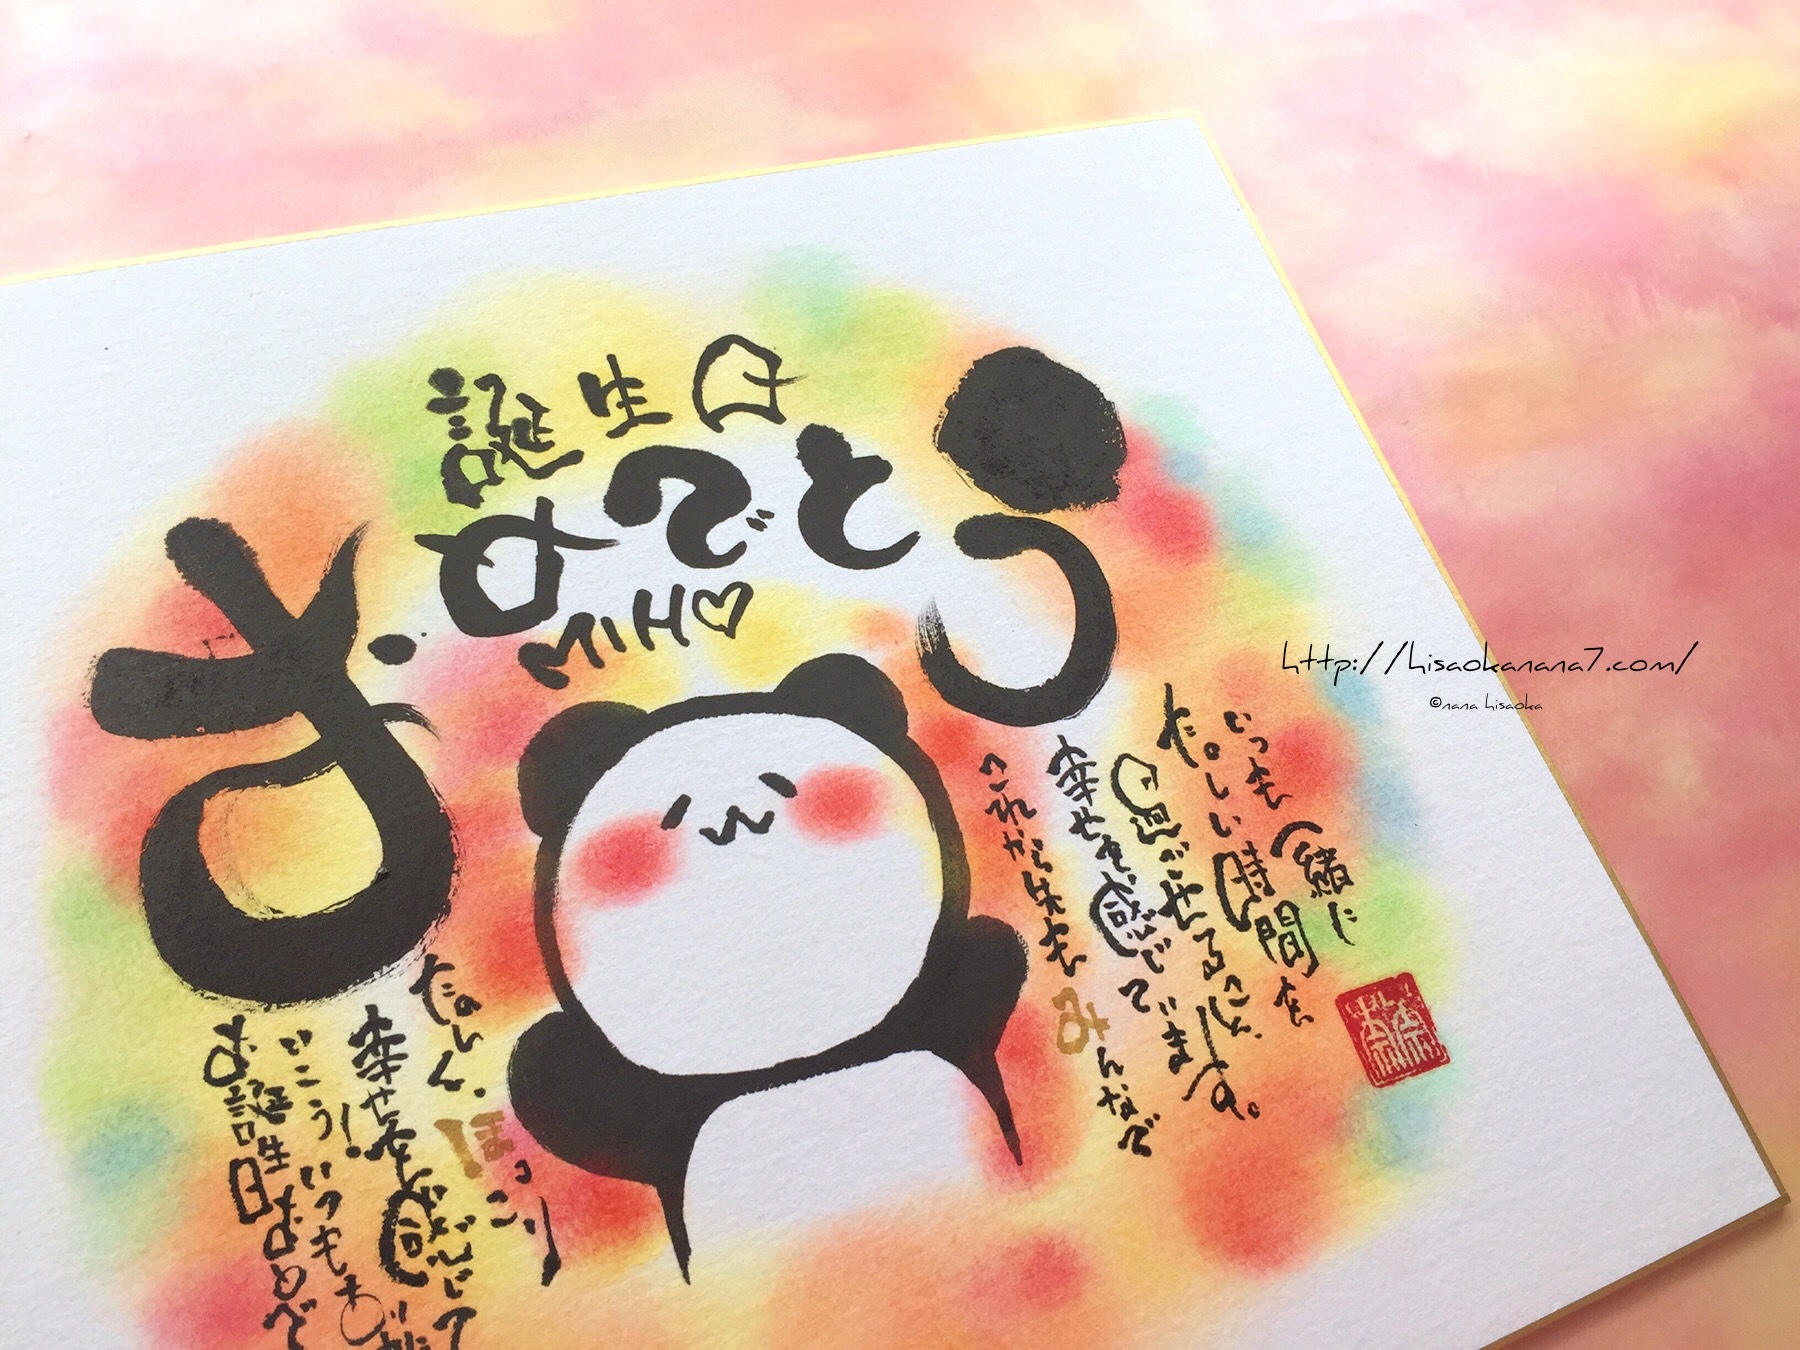 誕生日
おめでとう
MIHO
いつも一緒に
たのしい時間を
過ごせること、
幸せを感じています。
これから先も みんなで
たのしく、ほっこり
幸せを感じて
いこう!いつもありがとう
お誕生日おめで
http://hisaokanana7.com/
©nana hisaoka